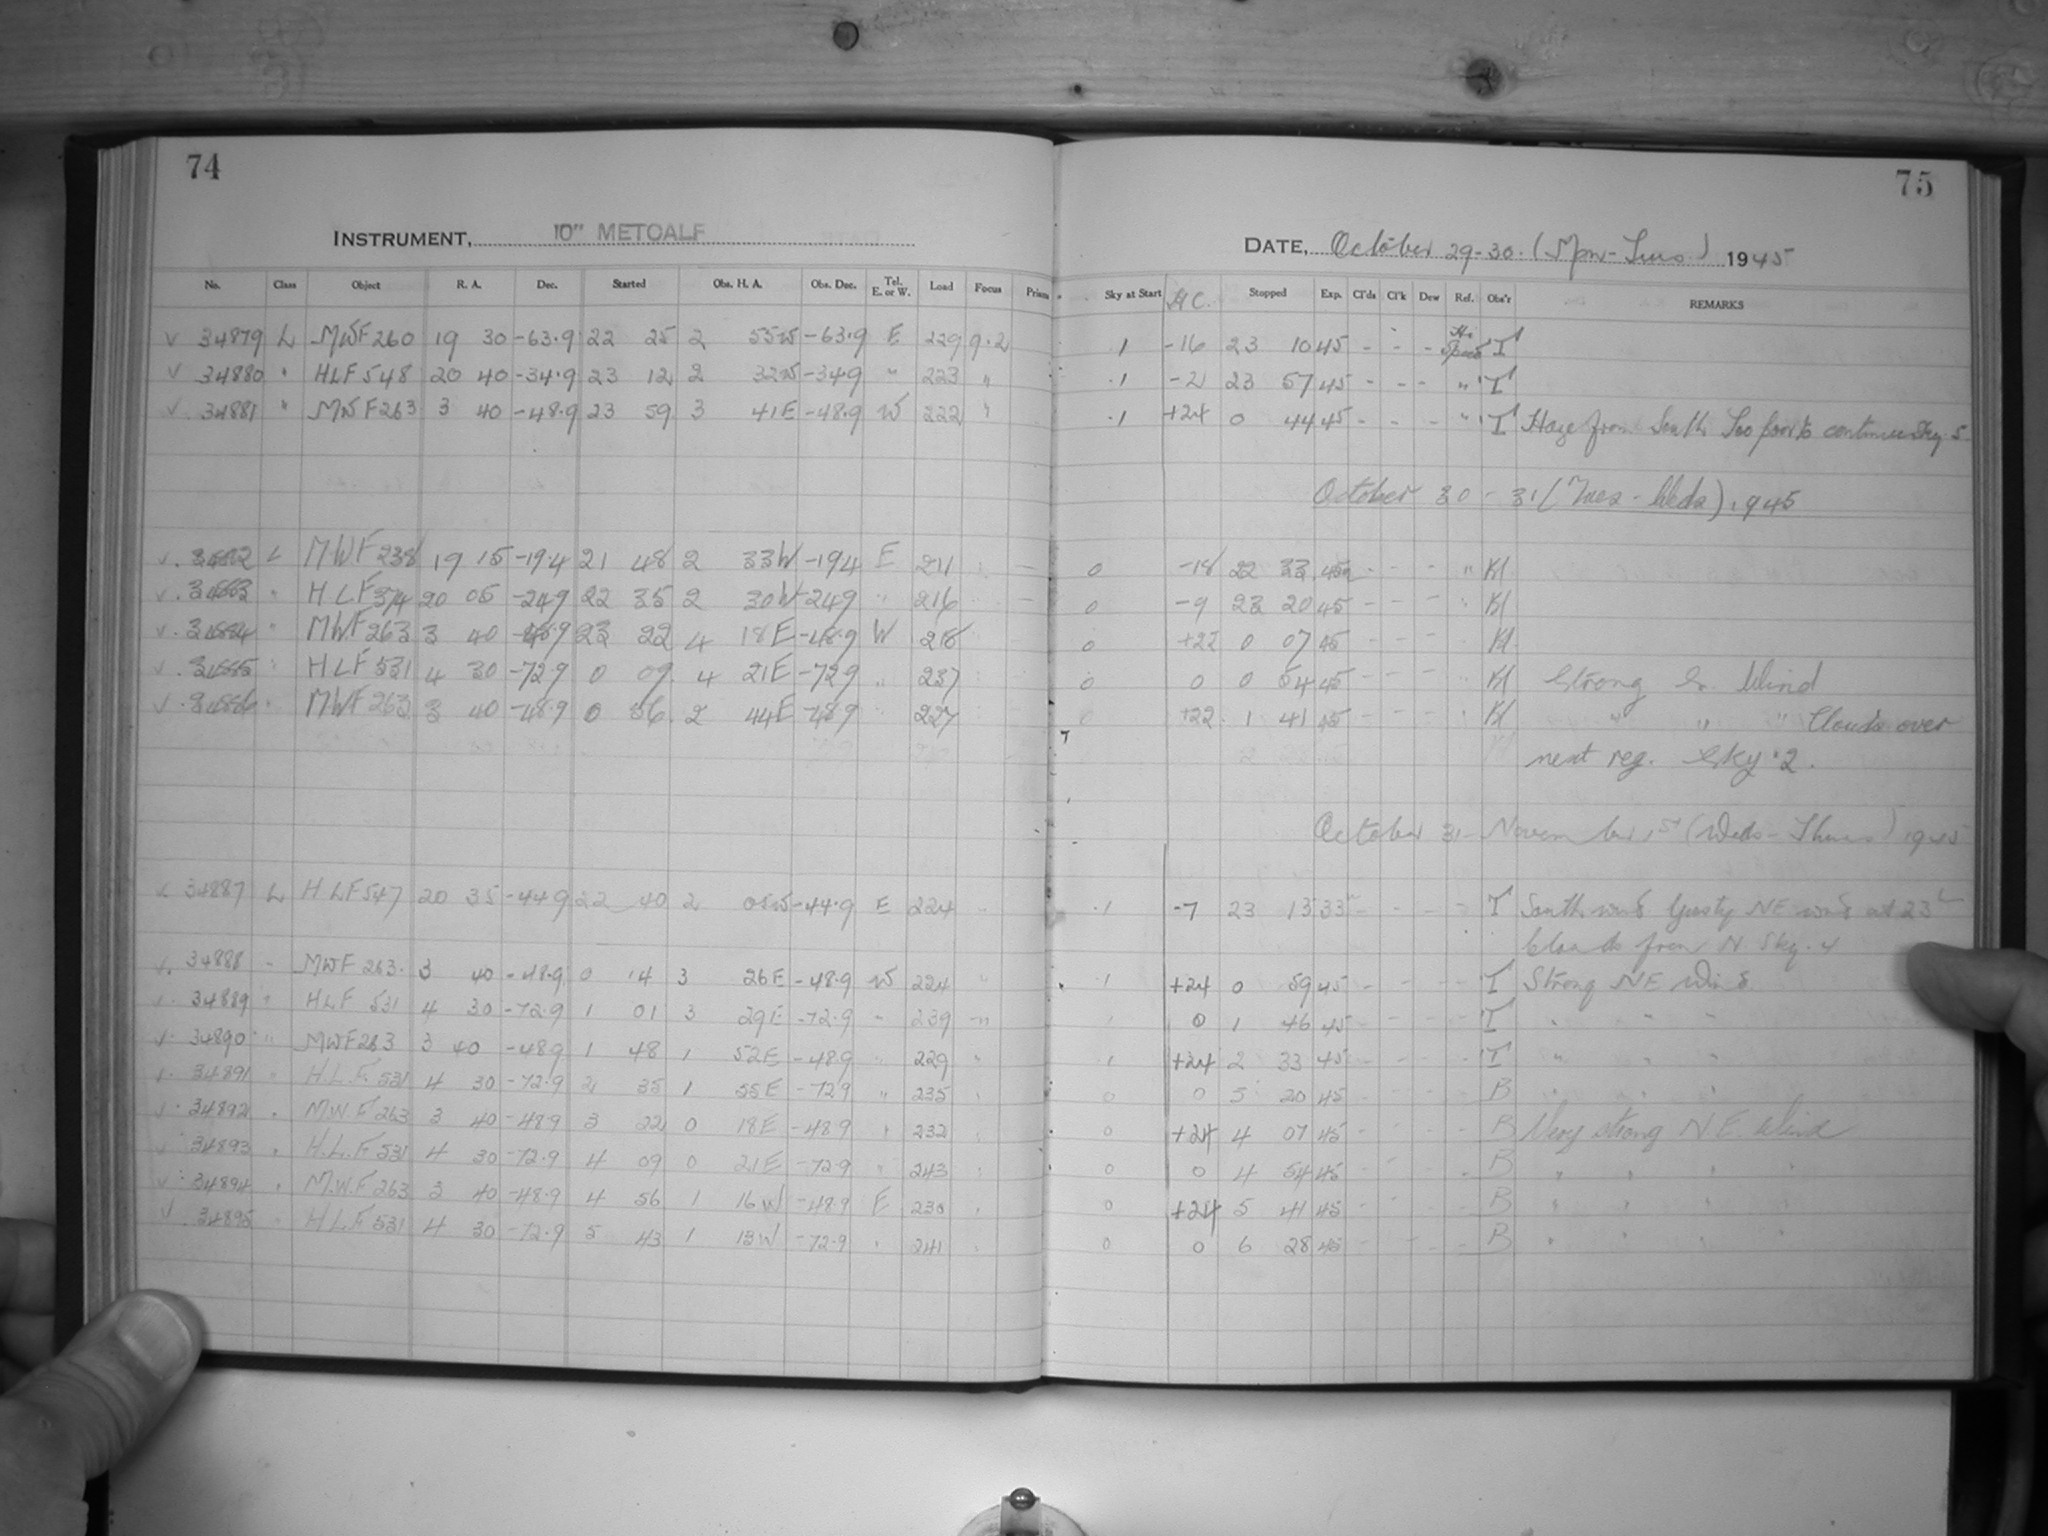 74
75
INSTRUMENT, 10" METCALF
DATE, October 29-30. (Mon-Tues) 1945
No. Class Object R. A. Dec. Started Obs. H. A. Obs. Dec. Tel. E. or W. Load Focus Prism Sky at Start H.C. Stopped Exp. Cl'ds Cl'k Dew Ref. Obs'r REMARKS
v 34879 L MWF 260 19 30 -63.9 22 25 2 55W -63.9 E 229 9.2 1 -16 23 10 45 - - - Hi Speed T
v 34880 " HLF 548 20 40 -34.9 23 12 2 32W -349 " 223 " .1 -2 23 57 45 - - - " T
v 34881 " MWF 263 3 40 -48.9 23 59 3 41E -48.9 W 222 " .1 +24 0 44 45 - - - " T Haze from South Too poor to continue Sky .5
October 30 - 31 (Tues - Weds) 1945
v. 34882 L MWF 238 19 15 -19.4 21 48 2 33W -194 E 211 - 0 -18 22 33 45 - - - " Kl
v. 34883 " HLF 374 20 05 -249 22 35 2 30W -249 " 216 - 0 -9 23 20 45 - - - " Kl
v. 34884 " MWF 263 3 40 -48.9 23 22 4 18E -48.9 W 218 0 +22 0 07 45 - - - Kl.
v. 34885 " HLF 531 4 30 -72.9 0 09 4 21E -729 " 237 0 0 0 54 45 - - - Kl Strong S. Wind
v. 34886 " MWF 263 3 40 -48.9 0 56 2 44E -489 " 227 0 +22 1 41 45 - - - Kl " " " Clouds over
next reg. Sky .2.
October 31 - November 1st (Weds - Thurs) 1945
v. 34887 L HLF 547 20 35 -449 22 40 2 05W -44.9 E 224 .1 -7 23 13 33 - - - T South wind Gusty NE wind at 23
Clouds from N Sky .4
v. 34888 " MWF 263. 3 40 -48.9 0 14 3 26E -48.9 W 224 " .1 +24 0 59 45 - - - T Strong NE wind
v. 34889 " HLF 531 4 30 -72.9 1 01 3 29E -72.9 " 239 " 0 1 46 45 - - - T " " "
v. 34890 " MWF 263 3 40 -489 1 48 1 52E -489 " 229 " 1 +24 2 33 45 - - - T " " "
v. 34891 " H.L.F. 531 4 30 -72.9 2 35 1 55E -729 " 235 0 0 5 20 45 - - - B " " "
v. 34892 " M.W.F 263 3 40 -489 3 22 0 18E -489 " 232 0 +24 4 07 45 - - - B Very strong N.E. Wind
v. 34893 " H.L.F 531 4 30 -72.9 4 09 0 21E -72.9 " 243 0 0 4 54 45 - - - B " " " "
v. 34894 " M.W.F 263 3 40 -48.9 4 56 1 16W -48.9 E 230 0 +24 5 41 45 - - - B " " " "
v. 34895 " HLF 531 4 30 -72.9 5 43 1 13W -72.9 " 241 0 0 6 28 45 - - - B " " " "